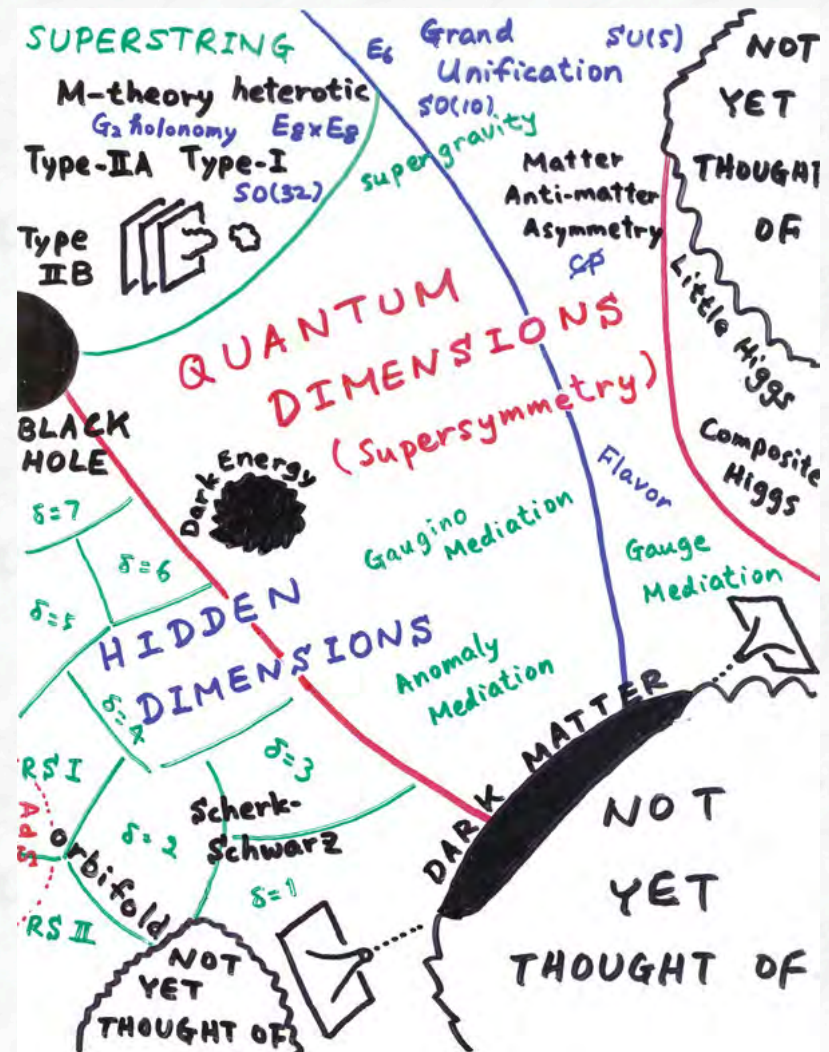 SUPERSTRING
M-theory heterotic
G₂ holonomy E₈×E₈
Type-ⅡA Type-I
SO(32)
Type
ⅡB
E₆
Grand
Unification
SU(5)
SO(10)
supergravity
Matter
Anti-matter
Asymmetry
CP
NOT
YET
THOUGHT
OF
Little Higgs
Composite
Higgs
QUANTUM
DIMENSIONS
(Supersymmetry)
BLACK
HOLE
Dark Energy
Flavor
Gaugino
Mediation
Gauge
Mediation
Anomaly
Mediation
δ=7
δ=6
δ=5
HIDDEN
DIMENSIONS
δ=4
δ=3
RS I
AdS
RS Ⅱ
orbifold
δ=2
Scherk-
Schwarz
δ=1
DARK MATTER
NOT
YET
THOUGHT OF
NOT
YET
THOUGHT OF